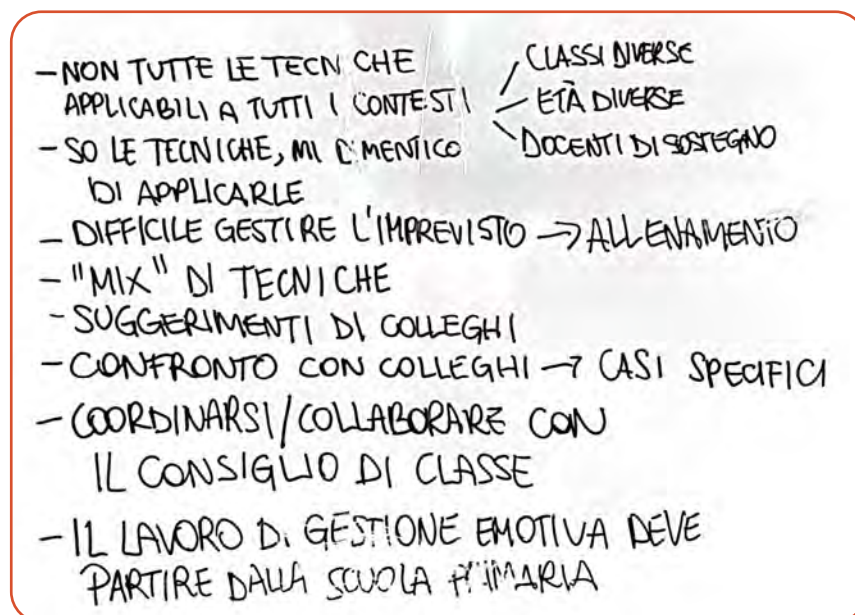 - NON TUTTE LE TECNICHE
APPLICABILI A TUTTI I CONTESTI
CLASSI DIVERSE
- ETÀ DIVERSE
DOCENTI DI SOSTEGNO
- SO LE TECNICHE, MI DIMENTICO
DI APPLICARLE
- DIFFICILE GESTIRE L'IMPREVISTO → ALLENAMENTO
- "MIX" DI TECNICHE
- SUGGERIMENTI DI COLLEGHI
- CONFRONTO CON COLLEGHI → CASI SPECIFICI
- COORDINARSI/COLLABORARE CON
IL CONSIGLIO DI CLASSE
- IL LAVORO DI GESTIONE EMOTIVA DEVE
PARTIRE DALLA SCUOLA PRIMARIA